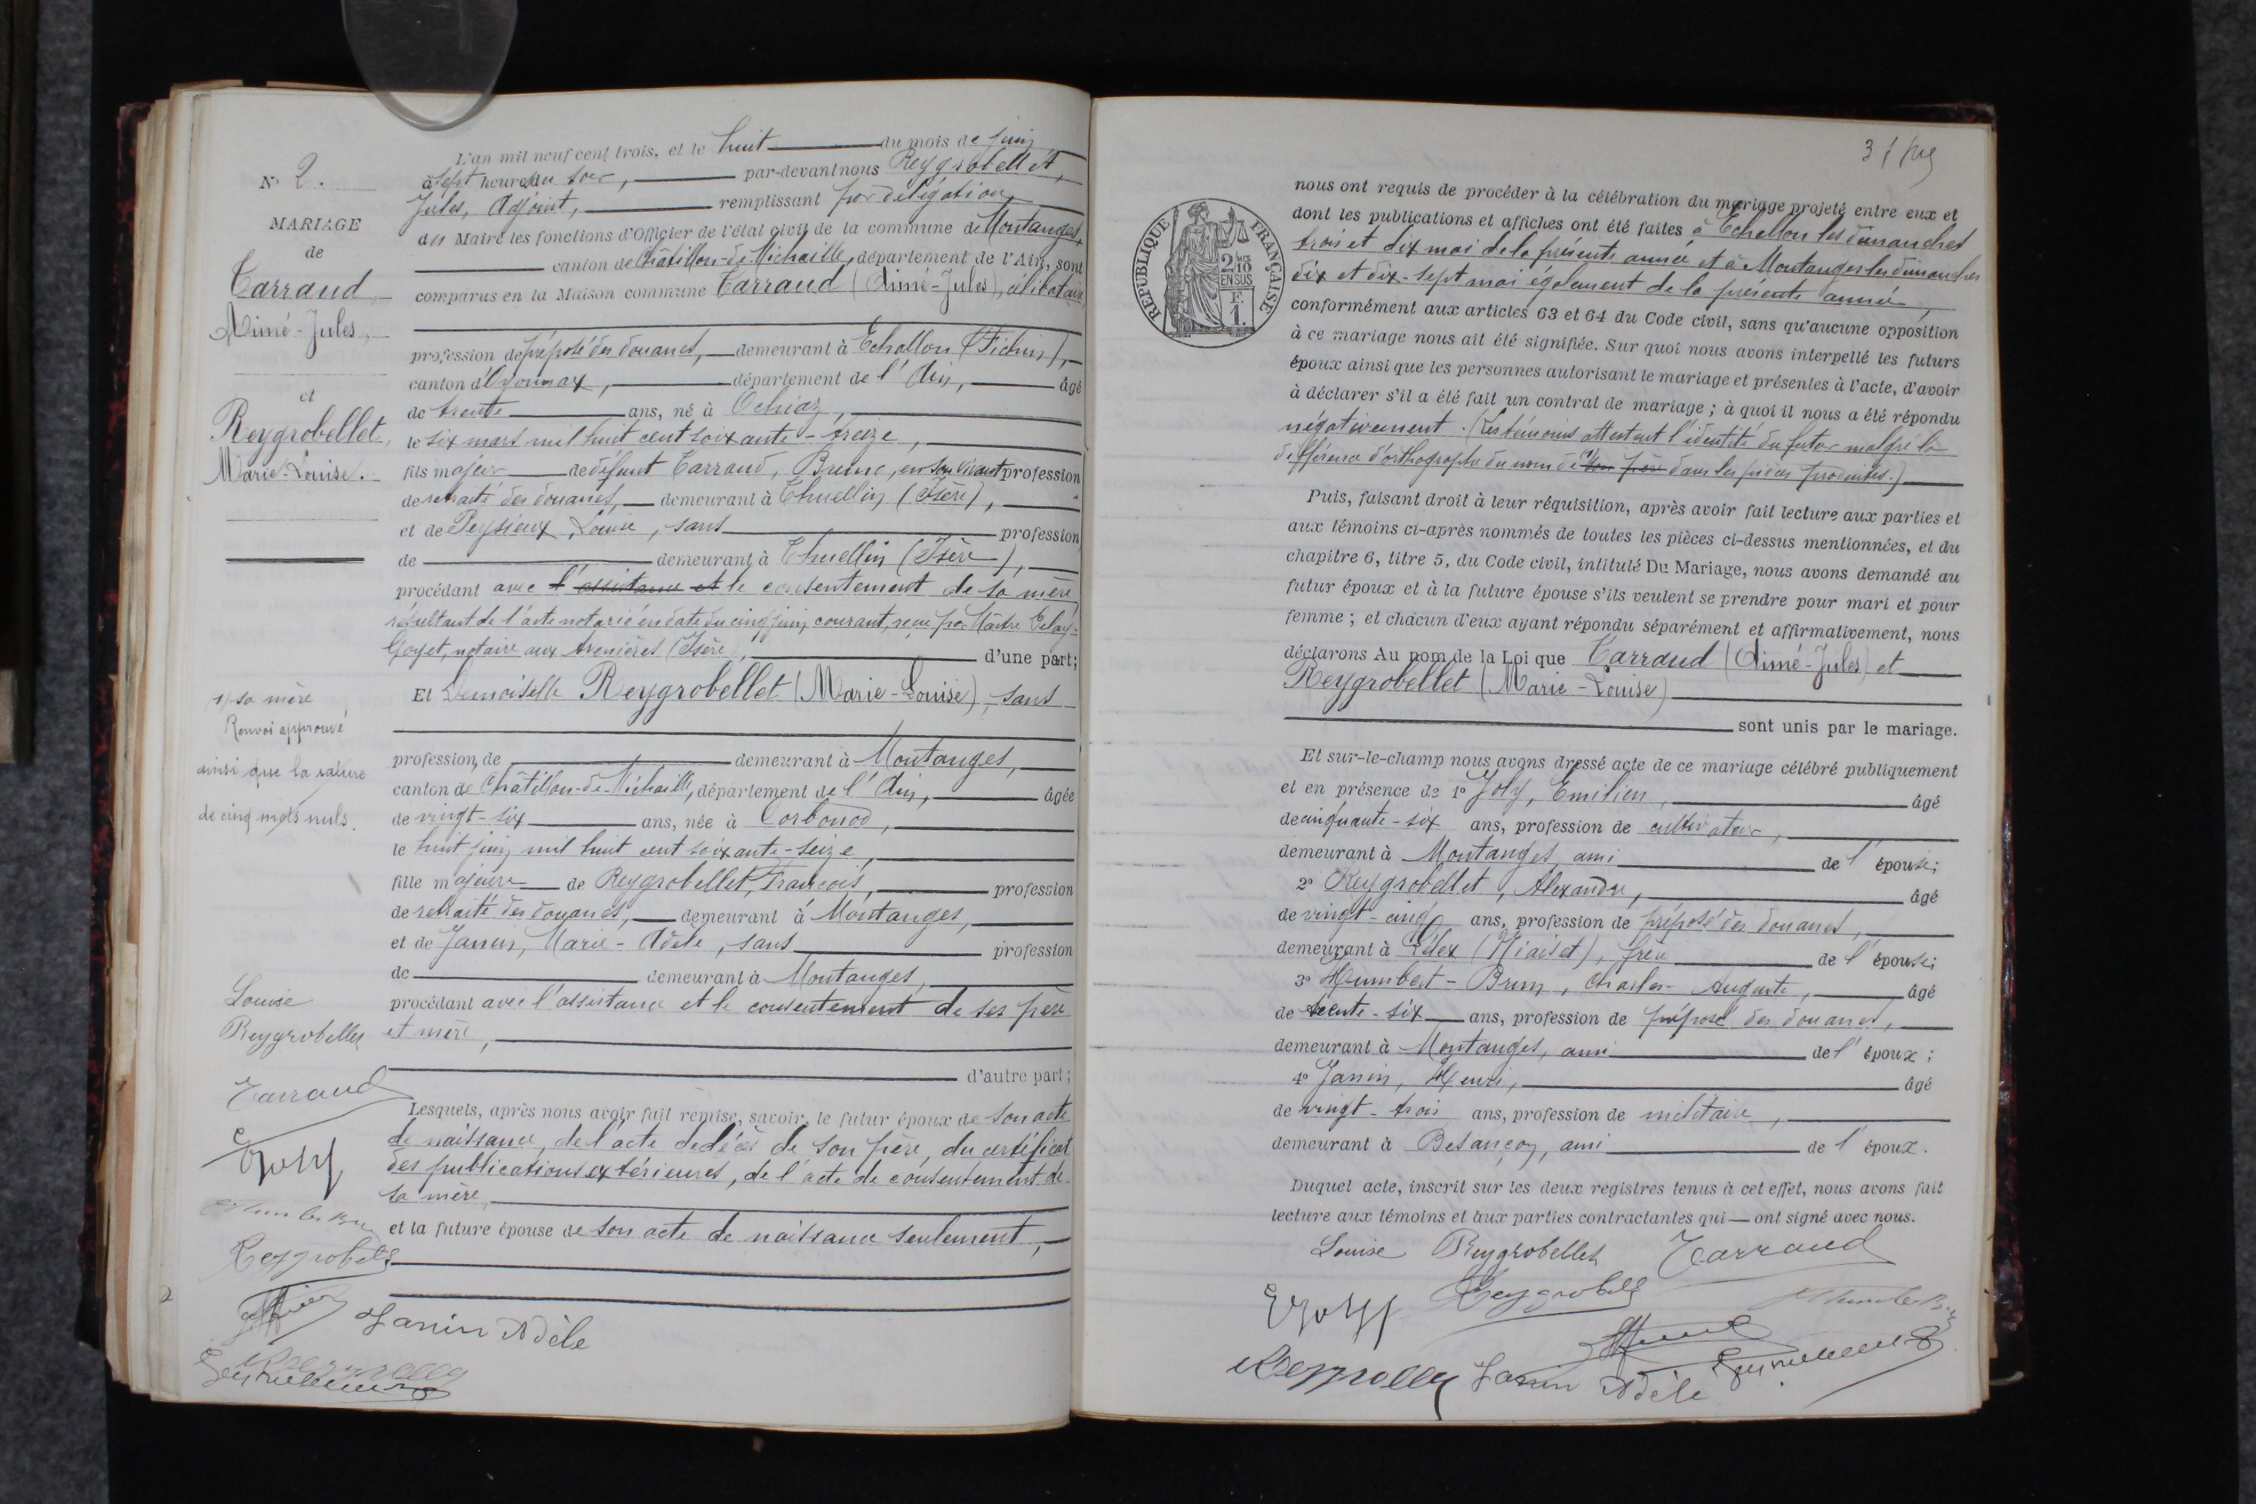 N° 2.
MARIAGE
de
Tarraud
Aimé-Jules,
et
Reygrobellet
Marie-Louise.
1) sa mère
Renvoi approuvé
ainsi que la rature
de cinq mots nuls.
Louise
Reygrobellet
Tarraud
EJoly
Reygrobellet
Janin Adèle
L'an mil neuf cent trois, et le huit du mois de juin
à sept heures du soir, par-devant nous Reygrobellet,
Jules, Adjoint, remplissant par délégation
des Maire les fonctions d'Officier de l'état civil de la commune de Montanges,
canton de Châtillon-de-Michaille, département de l'Ain, sont
comparus en la Maison commune Tarraud (Aimé-Jules), célibataire,
profession de préposé des douanes, demeurant à Echallon,
canton d'Oyonnax, département de l'Ain, âgé
de trente ans, né à Ochiaz,
le six mars mil huit cent soixante-treize,
fils majeur de défunt Tarraud, Brune, en son vivant profession
de retraité des douanes, demeurant à Thuellin (Isère),
et de Peysieux, Louise, sans profession
de demeurant à Thuellin (Isère),
procédant avec l'assistance et le consentement de sa mère
résultant de l'acte notarié en date du cinq juin courant, reçu par Maître
Goyet, notaire aux Avenières (Isère), d'une part;
Et Demoiselle Reygrobellet (Marie-Louise), sans
profession, de demeurant à Montanges,
canton de Châtillon-de-Michaille, département de l'Ain, âgée
de vingt-six ans, née à Corbonod,
le huit juin mil huit cent soixante-seize,
fille majeure de Reygrobellet, François, profession
de retraité des douanes, demeurant à Montanges,
et de Janin, Marie-Adèle, sans profession
de demeurant à Montanges,
procédant avec l'assistance et le consentement de ses père
et mère,
d'autre part;
Lesquels, après nous avoir fait remise, savoir, le futur époux de son acte
de naissance, de l'acte de décès de son père, du certificat
des publications extérieures, de l'acte de consentement de
sa mère
et la future épouse de son acte de naissance seulement,
RÉPUBLIQUE FRANÇAISE
2/10
EN SUS
F.
1.
nous ont requis de procéder à la célébration du mariage projeté entre eux et
dont les publications et affiches ont été faites à Echallon les dimanches
trois et dix mai de la présente année et à Montanges les dimanches
dix et dix-sept mai également de la présente année
conformément aux articles 63 et 64 du Code civil, sans qu'aucune opposition
à ce mariage nous ait été signifiée. Sur quoi nous avons interpellé les futurs
époux ainsi que les personnes autorisant le mariage et présentes à l'acte, d'avoir
à déclarer s'il a été fait un contrat de mariage ; à quoi il nous a été répondu
négativement. (Les témoins attestent l'identité du futur malgré la
différence d'orthographe du nom de 1) son père dans les pièces produites.)
Puis, faisant droit à leur réquisition, après avoir fait lecture aux parties et
aux témoins ci-après nommés de toutes les pièces ci-dessus mentionnées, et du
chapitre 6, titre 5, du Code civil, intitulé Du Mariage, nous avons demandé au
futur époux et à la future épouse s'ils veulent se prendre pour mari et pour
femme ; et chacun d'eux ayant répondu séparément et affirmativement, nous
déclarons Au nom de la Loi que Tarraud (Aimé-Jules) et
Reygrobellet (Marie-Louise)
sont unis par le mariage.
Et sur-le-champ nous avons dressé acte de ce mariage célébré publiquement
et en présence de 1° Joly, Emilien, âgé
de cinquante-six ans, profession de cultivateur,
demeurant à Montanges, ami de l'épouse;
2° Reygrobellet, Alexandre, âgé
de vingt-cinq ans, profession de préposé des douanes,
demeurant à Lélex (Niaiset), frère de l'épouse;
3° Humbert-Brun, Charles-Auguste, âgé
de trente-six ans, profession de préposé des douanes,
demeurant à Montanges, ami de l'époux ;
4° Janin, Henri, âgé
de vingt-trois ans, profession de militaire,
demeurant à Besançon, ami de l'époux.
Duquel acte, inscrit sur les deux registres tenus à cet effet, nous avons fait
lecture aux témoins et aux parties contractantes qui ont signé avec nous.
Louise Reygrobellet Tarraud
EJoly Reygrobellet
Janin Adèle